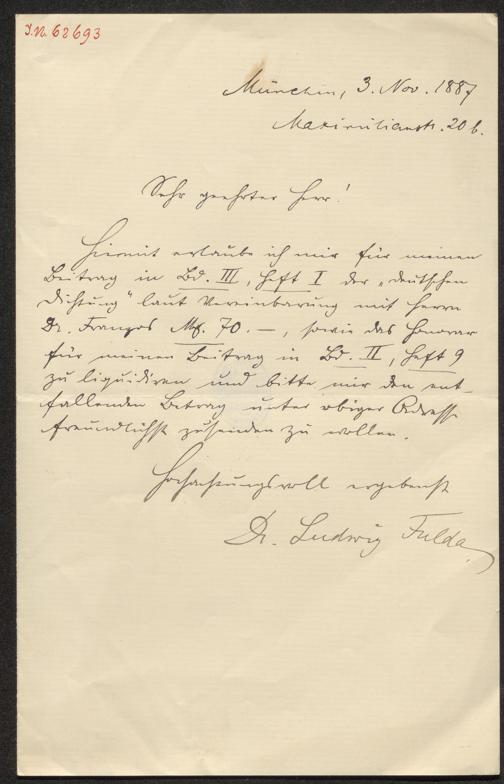 I.N. 62693
München, 3. Nov. 1887
Maximilianstr. 20 b.
Sehr geehrter Herr!
Hiermit erlaube ich mir für meinen
Beitrag in Bd. III, Heft I der „deutschen
Dichtung" laut Vereinbarung mit Herrn
Dr. Franzos Mk. 70. —, sowie das Honorar
für meinen Beitrag in Bd. II, Heft 9
zu liquidiren und bitte mir den ent-
fallenden Betrag unter obiger Adresse
freundlichst zusenden zu wollen.
Hochachtungsvoll ergebenst
Dr. Ludwig Fulda.